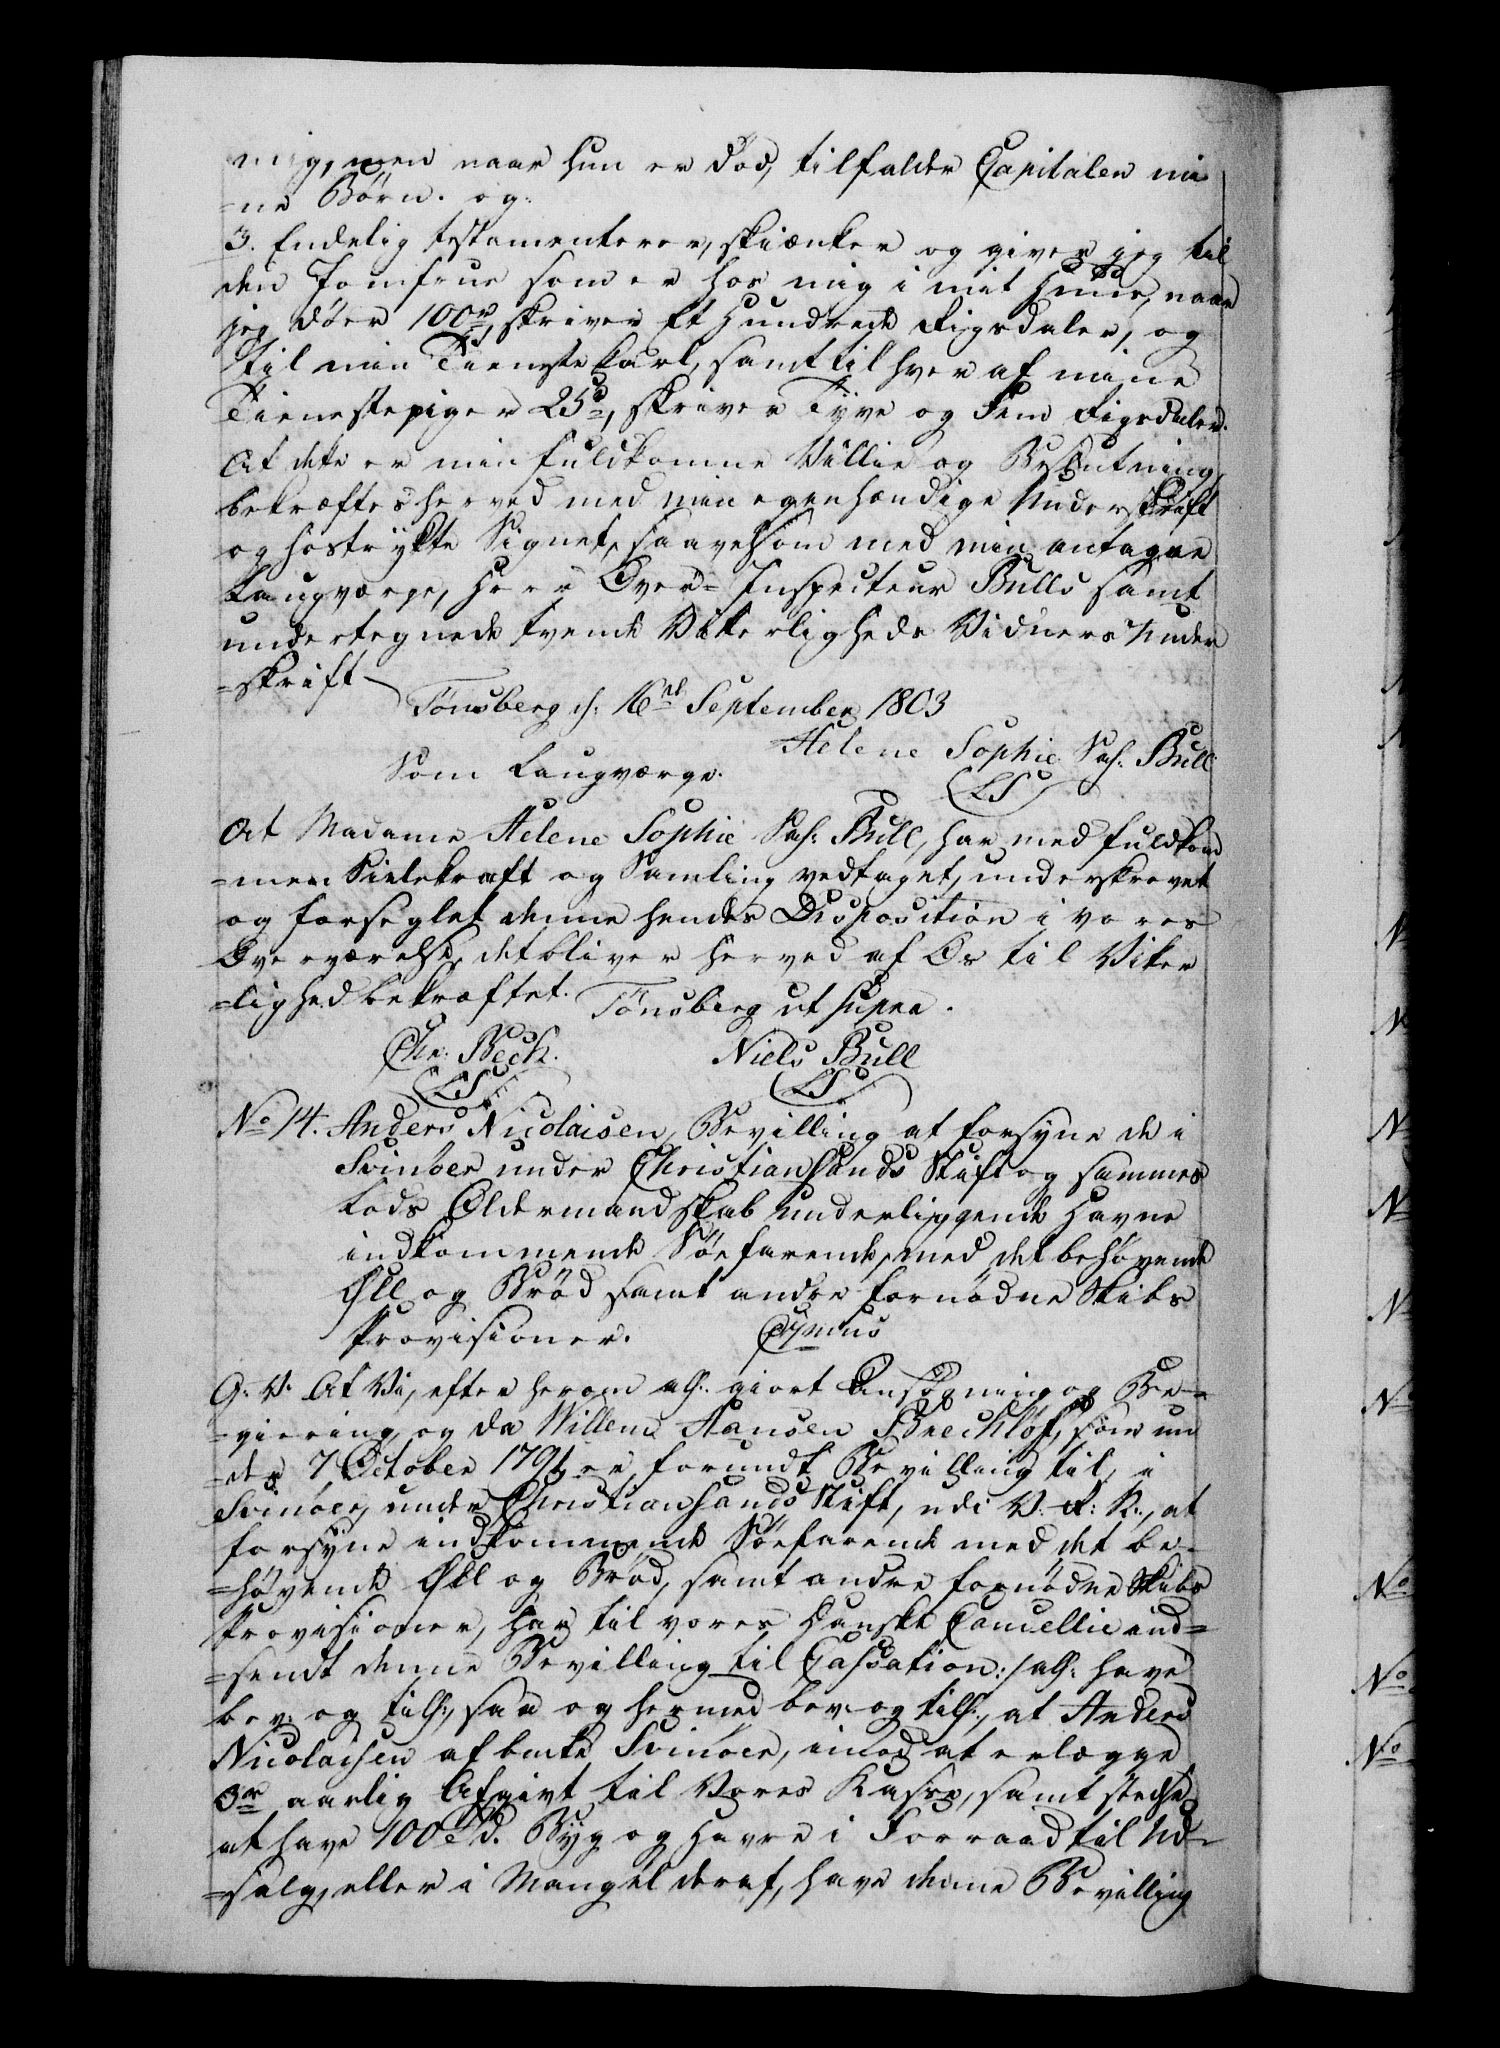 mig, men naar hun er død, tilfalder Capitalen mi
=ne Børn. og:
3. Endelig testamenterer, skiænker og giver jeg til
den Jomfrue som er hos mig i mit Huus, naar
jeg døer 100 rd, skriver Et Hundrede Rigsdaler, og
til min Tienestekarl, samt til hver af mine
Tienestepiger 25 rd, skriver Tyve og Fem Rigsdaler.
At dette er min fuldkomne Villie og Beslutning,
bekræftes herved med min egenhændige Underskrift
og hostrykte Signet, saavelsom med min antagne
Laugværge, Herr Over=Inspecteur Bulls samt
undertegnede tvende Vitterligheds Vidners Under
=skrift
Tønsberg d: 16de September 1803
Helene Sophie Sal: Bull
Som Laugværge.
(LS)
At Madame Helene Sophie Sal: Bull, har med fuldkom
=men Sielekraft og Samling vedtaget, underskrevet
og forseglet denne hendes Disposition i vores
Overværelse, det bliver herved af Os til Viter
=lighed bekræftet. Tønsberg ut supra.
Chr: Bech. Niels Bull
(LS) (LS)
No 14. Anders Nicolaisen, Bevilling at forsyne de i
Svinöer under Christiansands Stift og sammes
Lods Oldermandskab underliggende Havne
indkommende Söefarende, med det behøvende
Øll og Brød samt andre fornødne Skibs
Provisioner.
G: V: At Vi, efter herom als: giort Ansøgning og Be=
=giering, og da Willem Hansen Brechløf, som un
=der 7 October 1791 er forundt Bevilling til, i
Svinöer, under Christiansands Stift, udi V: R: N:, at
forsyne indkommende Söefarende med det be=
=høvende Øll og Brød, samt andre fornødne Skibs
Provisioner, har til vores Danske Cancellie ind=
=sendt denne Bevilling til Cassation:/ als: have
bev: og tills:, saa og hermed bev: og tills:, at Anders
Nicolaisen af bemte Svinöer, imod at erlægge
3 rd aarlig Afgivt til Vores Kasse, samt stedse
at have 100 Td. Byg og Havre i Forraad til Ud=
=salg, eller i Mangel deraf, have denne Bevilling